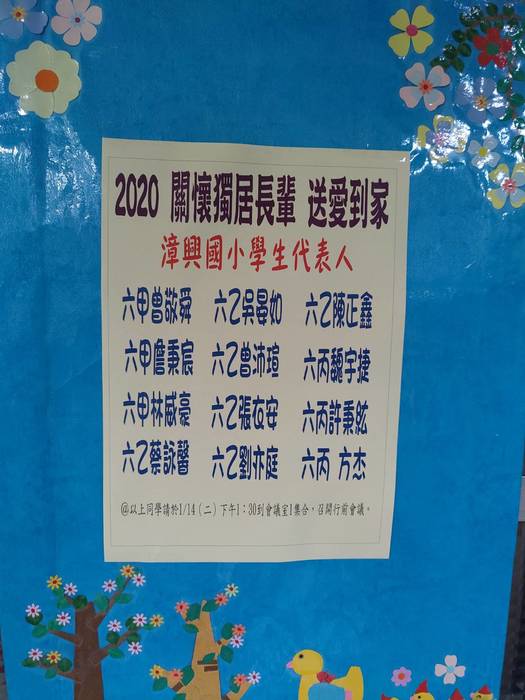 2020 關懷獨居長輩 送愛到家
漳興國小學生代表人
六甲曾敬舜 六乙吳晏如 六乙陳正鑫
六甲詹秉宸 六乙曾沛瑄 六丙魏宇捷
六甲林威豪 六乙張在安 六丙許秉鉉
六乙蔡詠馨 六乙劉亦庭 六丙 方杰
@以上同學請於1/14（二）下午1：30到會議室1集合，召開行前會議。